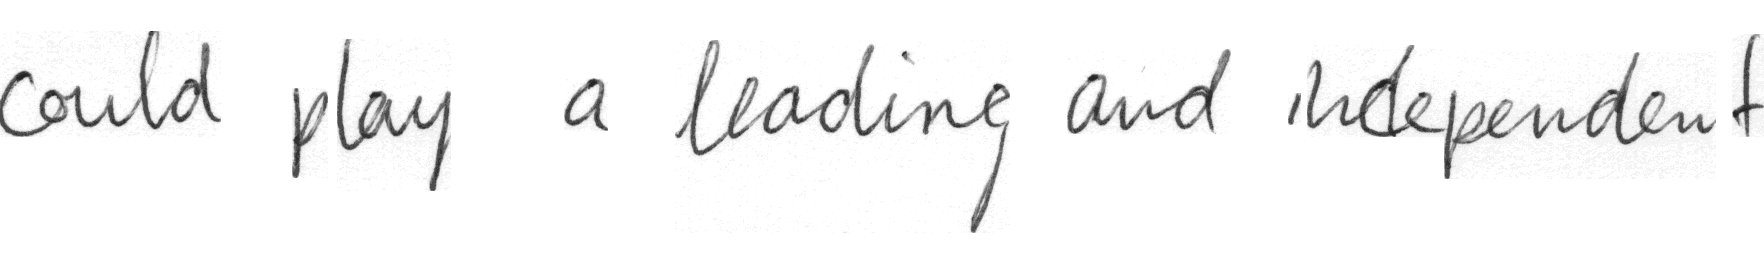 could play a leading and independent